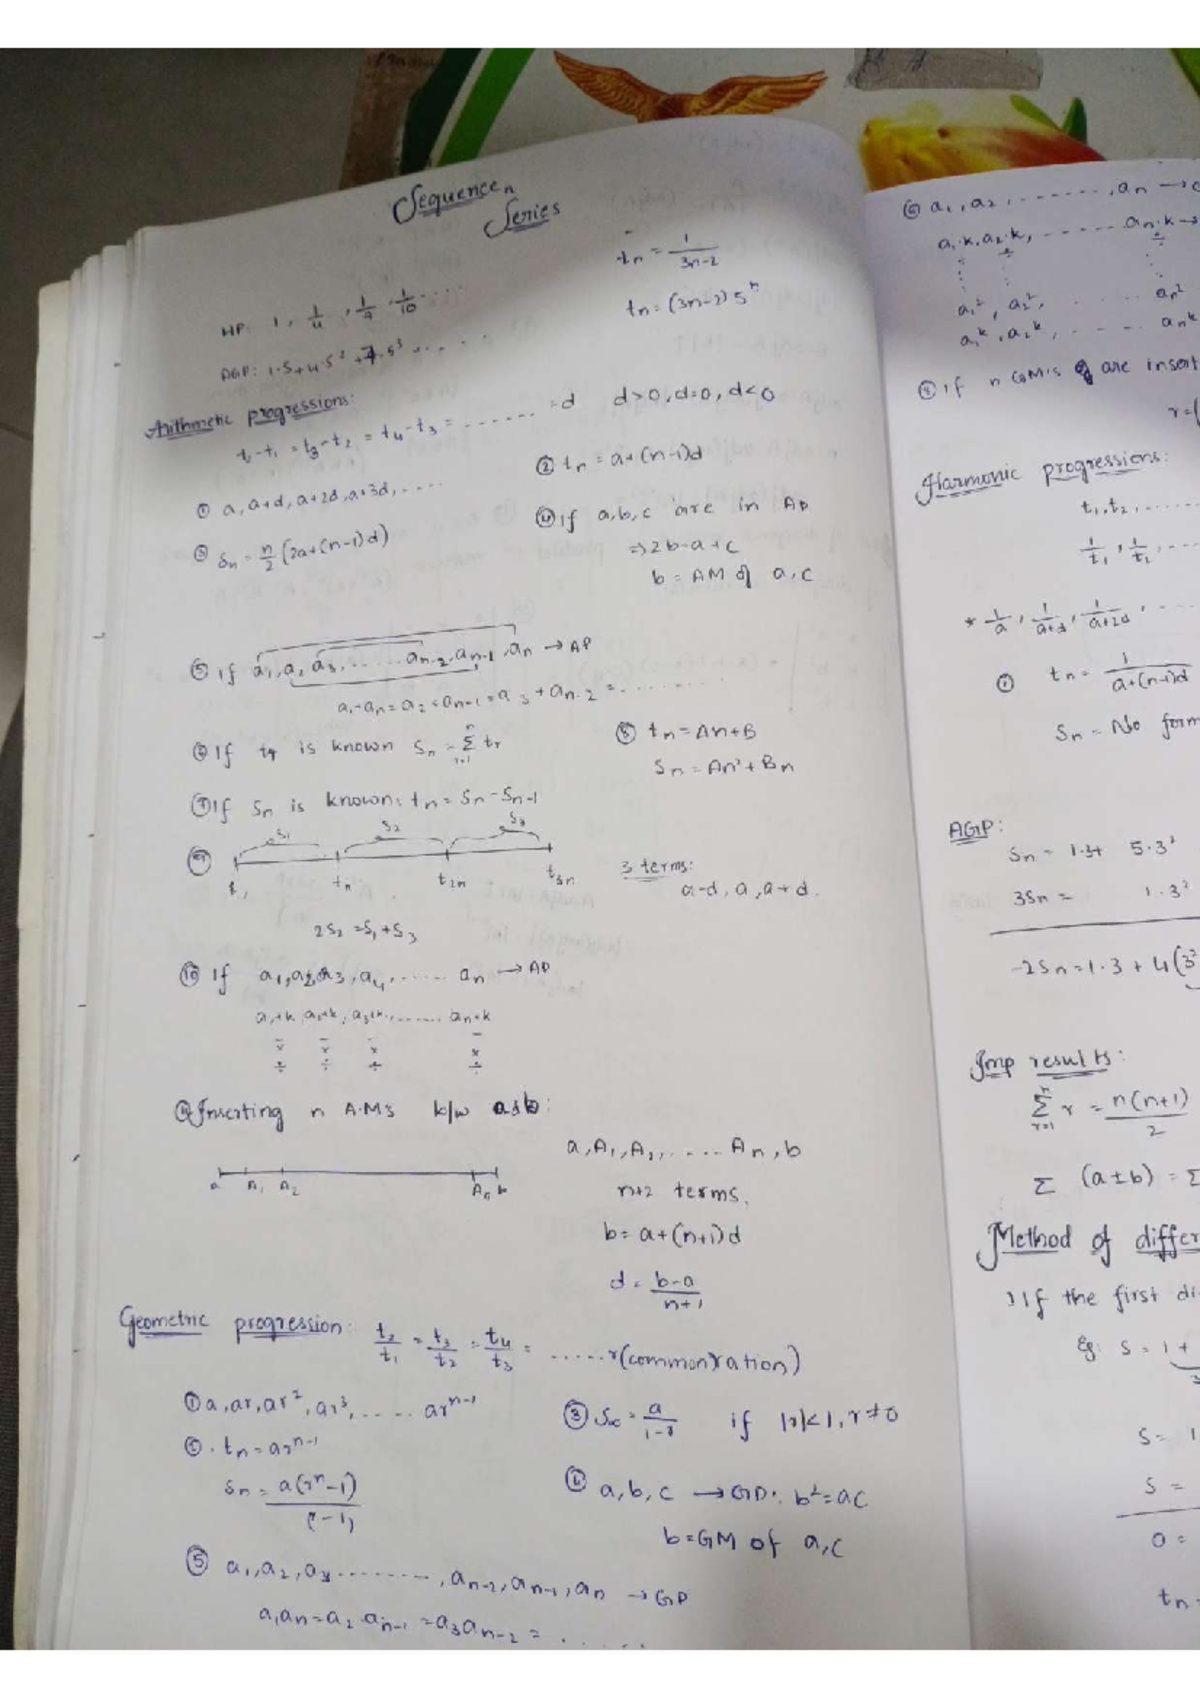 Sequence n
Series
HP: 1, 1/4, 1/7, 1/10 ....
tn = 1/(3n-2)
AGP: 1·5+4·5²+7·5³ ......
tn = (3n-2)5^n
Arithmetic progressions:
t2-t1 = t3-t2 = t4-t3 = ....... = d   d>0, d=0, d<0
① a, a+d, a+2d, a+3d, ....
② tn = a+(n-1)d
③ Sn = n/2 (2a+(n-1)d)
④ If a, b, c are in AP
⇒ 2b=a+c
b = AM of a, c
⑤ If a1, a2, a3, ...... an-2, an-1, an → AP
a1+an = a2+an-1 = a3+an-2 = .........
⑥ If tr is known Sn = Σ(r=1 to n) tr
⑧ tn = An+B
Sn = An²+Bn
⑦ If Sn is known: tn = Sn-Sn-1
⑨ S1 S2 S3
t1 tn t2n t3n
2S2 = S1+S3
3 terms:
a-d, a, a+d.
⑩ If a1, a2, a3, a4, ...... an → AP
a1+k, a2+k, a3+k, ....... an+k
- - - -
x x x x
÷ ÷ ÷ ÷
⑪ Inserting n A.M's b/w a & b:
a A1 A2 An b
a, A1, A2, ..... An, b
n+2 terms.
b = a+(n+1)d
d = (b-a)/(n+1)
Geometric progression: t2/t1 = t3/t2 = t4/t3 = ..... r(common ration)
① a, ar, ar², ar³, ..... ar^(n-1)
② tn = ar^(n-1)
Sn = a(r^n-1)/(r-1)
③ S∞ = a/(1-r) if |r|<1, r≠0
④ a, b, c → GP: b²=ac
b=GM of a, c
⑤ a1, a2, a3 ........, an-2, an-1, an → GP
a1an = a2 an-1 = a3an-2 = ......
⑥ a1, a2, ......, an →
a1·k, a2·k, ...... an·k →
÷ ÷ ÷
a1², a2², ..... an²
a1^k, a2^k, ..... an^k
⑧ If n GM's of are insert
r = (
Harmonic progressions:
t1, t2, ......
1/t1, 1/t2, ...
* 1/a, 1/(a+d), 1/(a+2d), ...
① tn = 1/(a+(n-1)d)
Sn = No form
AGP:
Sn = 1·3+ 5·3²
3Sn = 1·3²
-2Sn = 1·3 + 4(3²
Imp results:
Σ(r=1 to n) r = n(n+1)/2
Σ (a±b) = Σ
Method of differ
1) If the first di
Eg: S = 1 +
S = 1
S =
0 =
tn